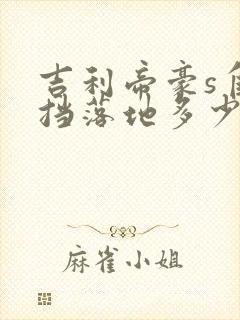 吉利帝豪s自
挡落地多少
麻雀小姐